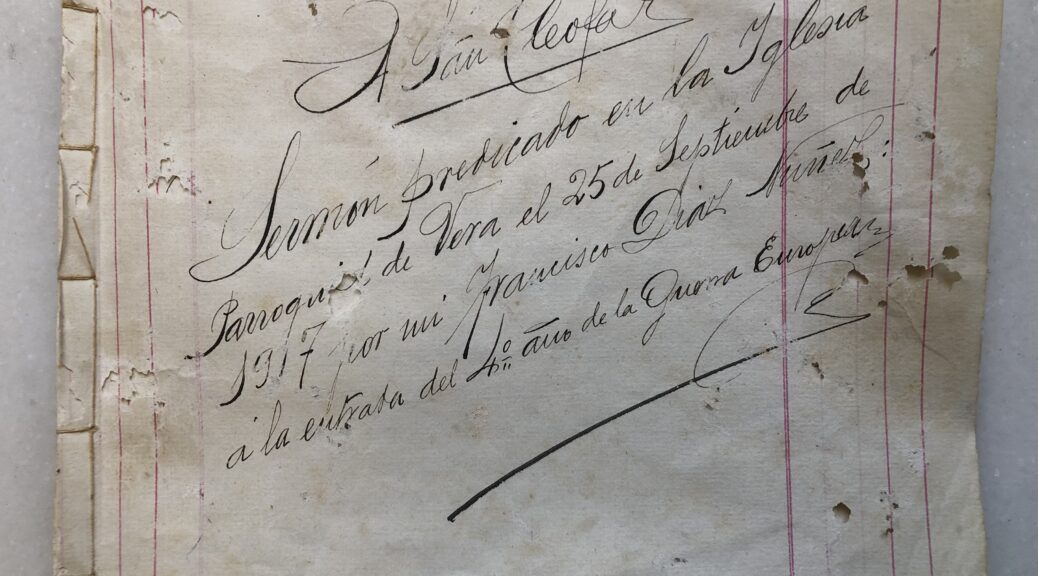 A San Cleofás
Sermón predicado en la Iglesia
Parroquial de Vera el 25 de Septiembre de
1917 por mi Francisco Diaz Nuñez:
á la entrada del 4º año de la Guerra Europea